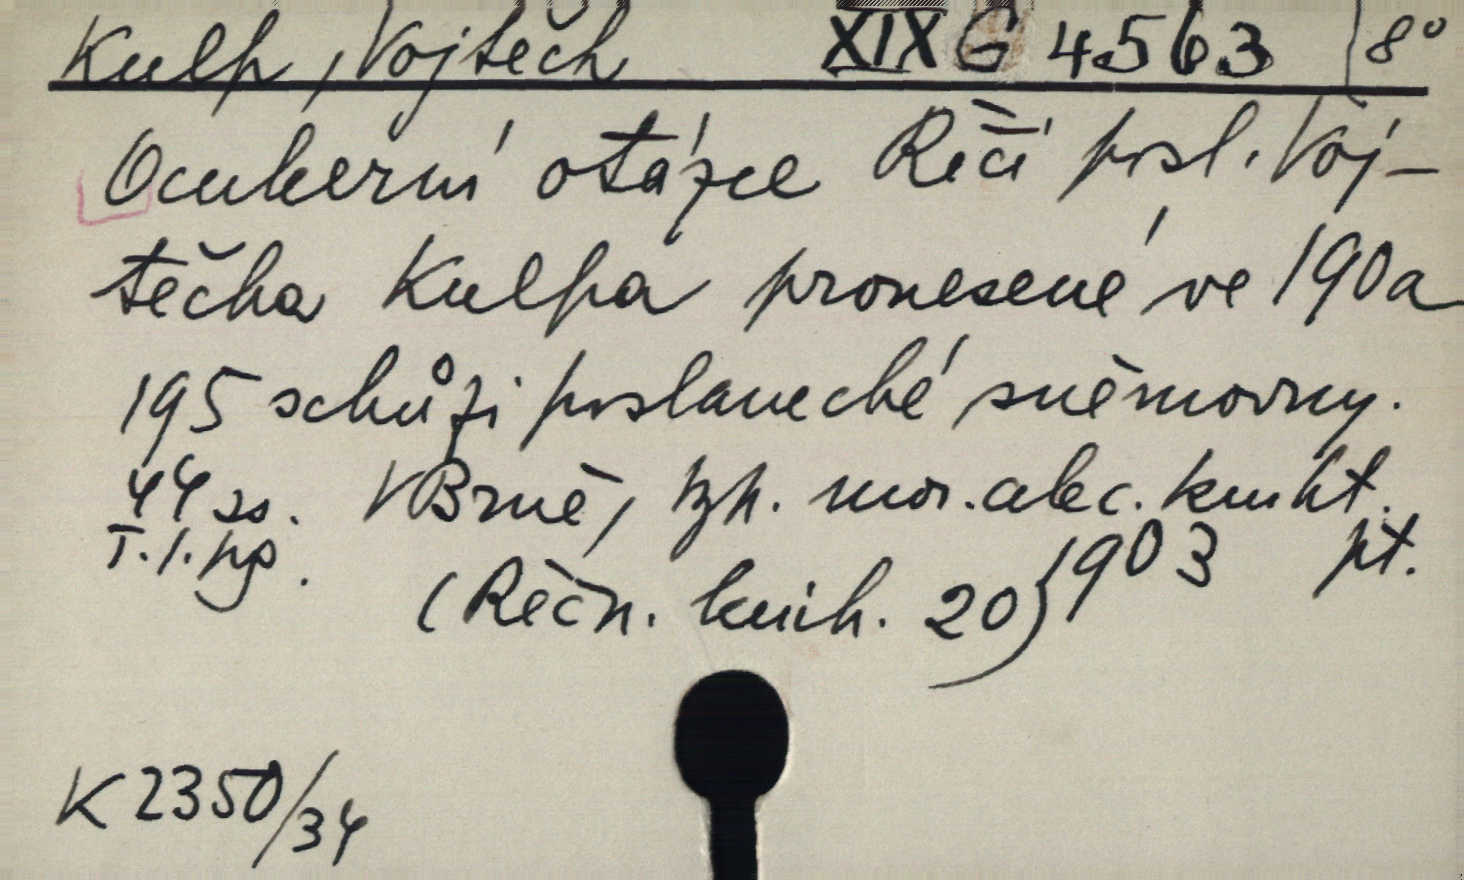 Kulp, Vojtěch XIX G 4563 8°
O cukerní otázce Řeči posl. Voj-
těcha Kulpa pronesené ve 190 a
195 schůzi poslanecké sněmovny.
44 ss. V Brně, mor. akc. kniht.
(Řečn. knih. 20) 1903 pt.
K 2350/34